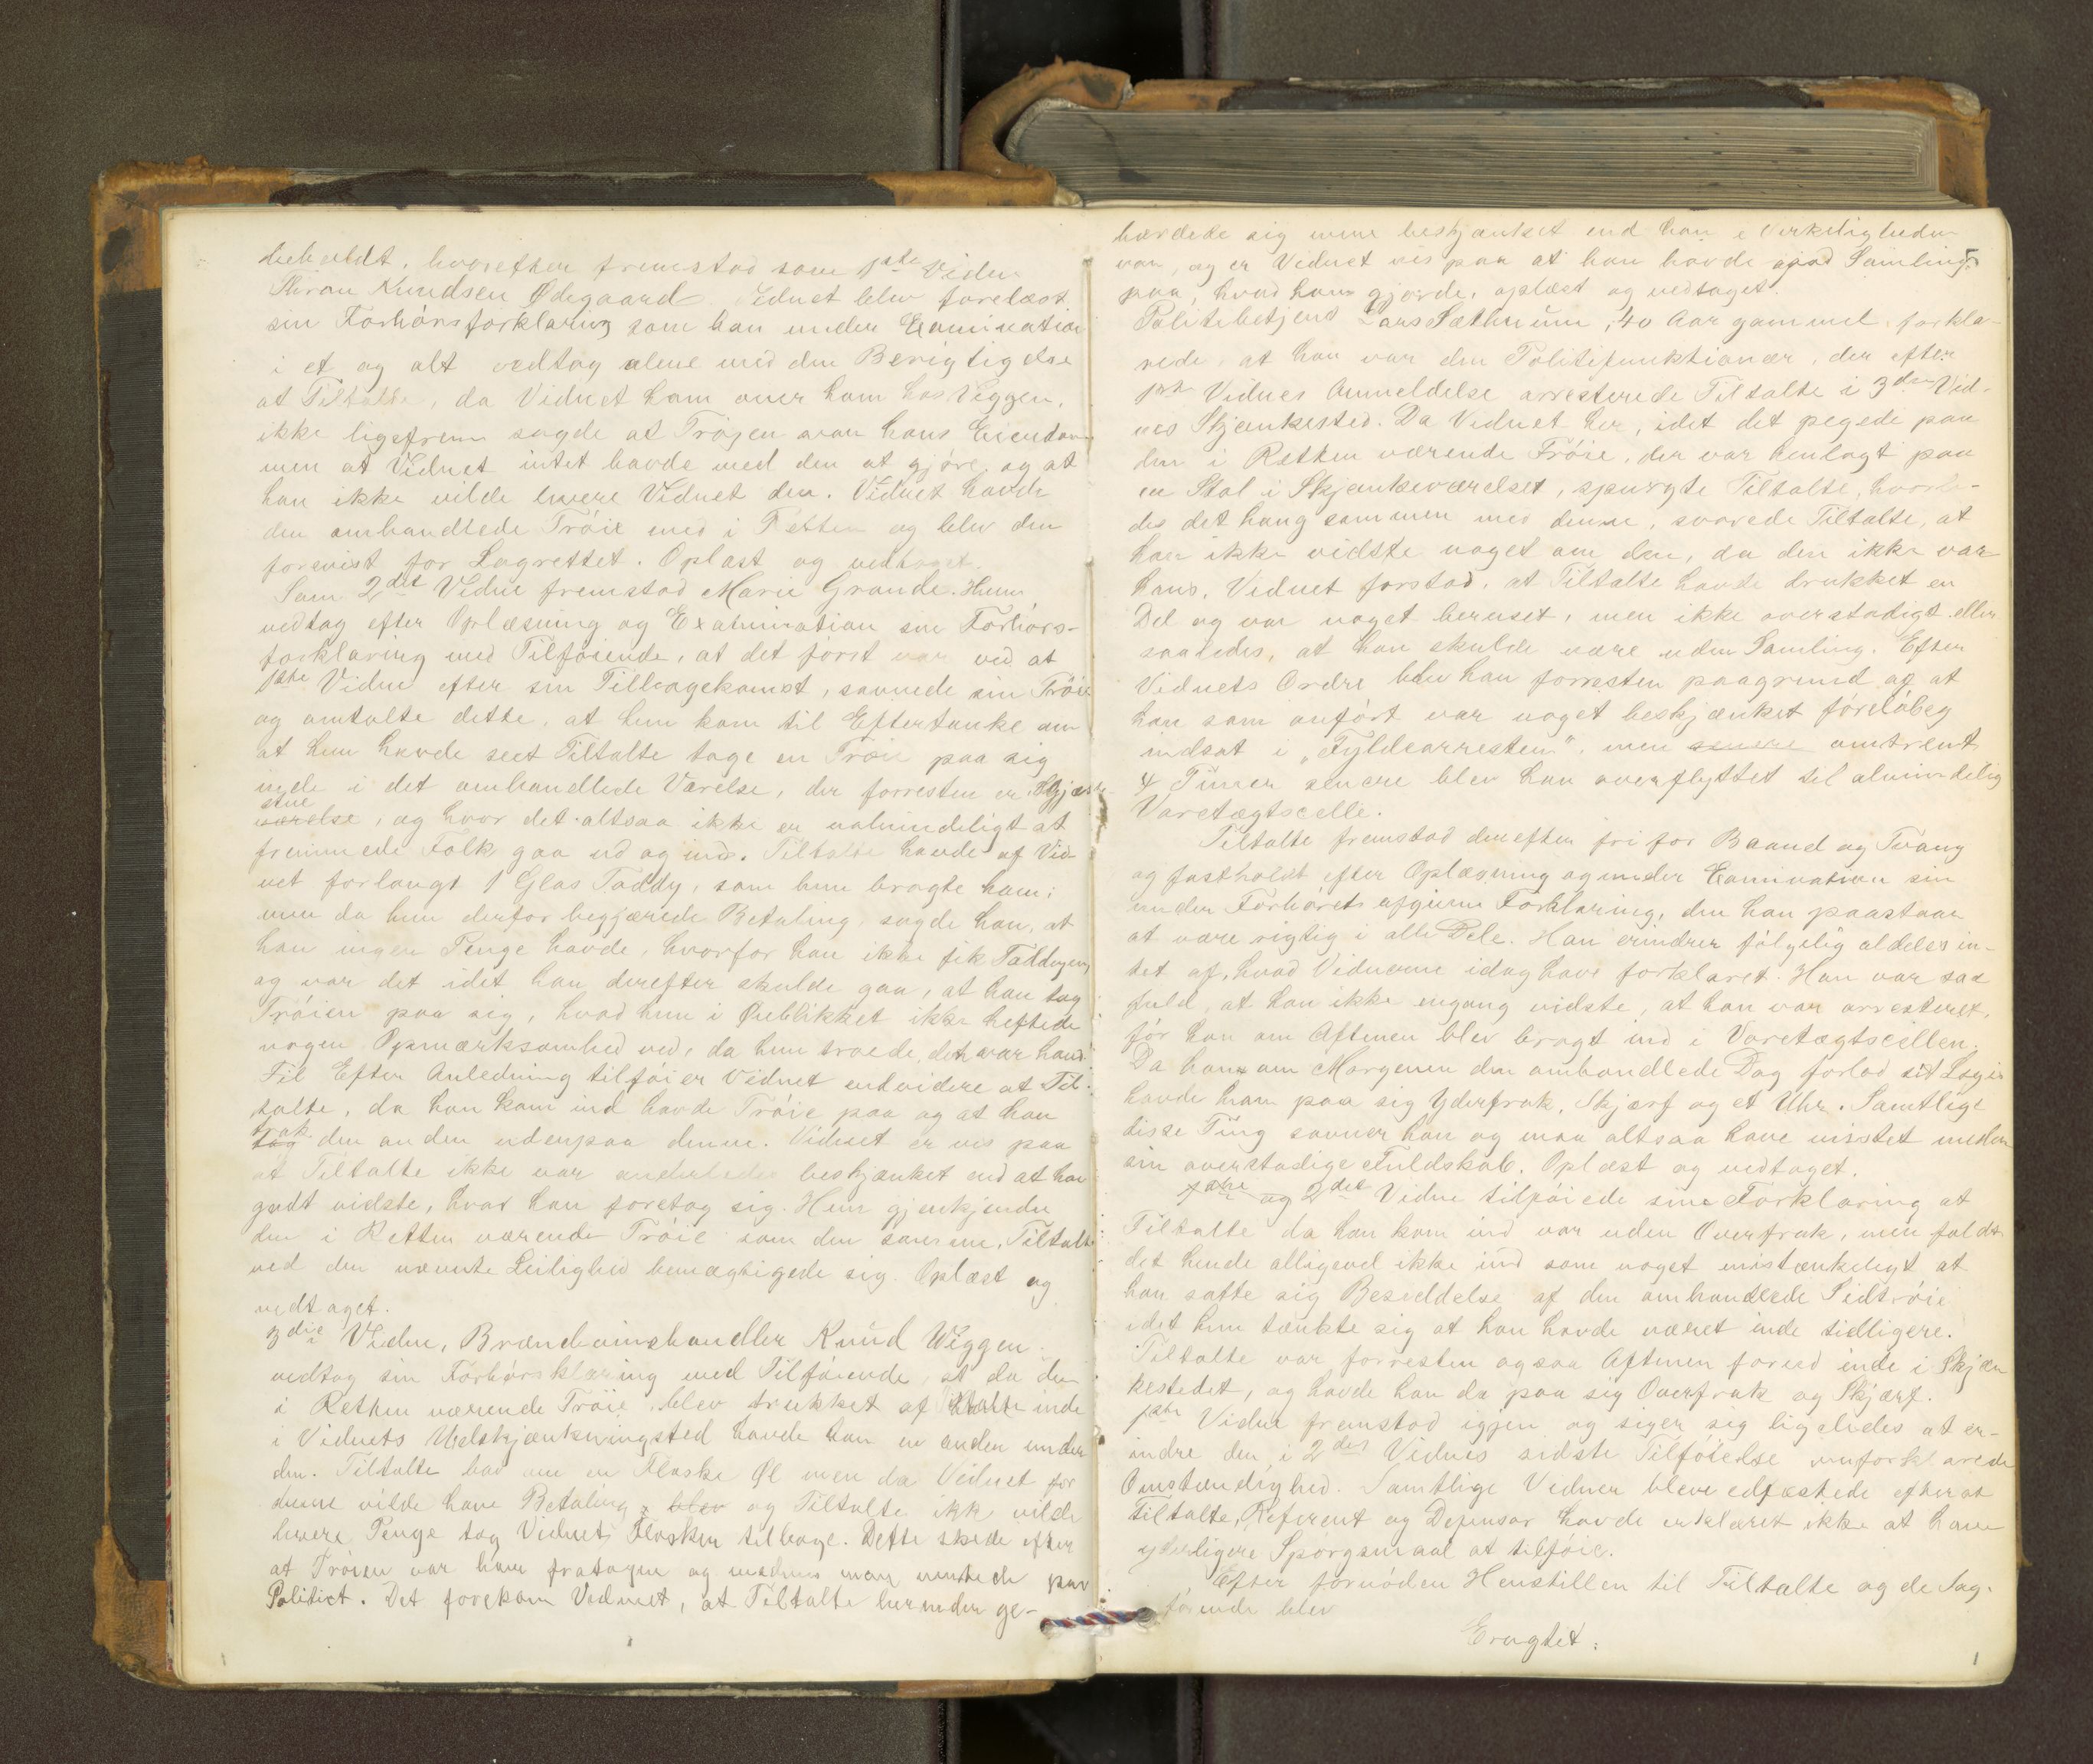 beholdt, hvorefter fremstod som 1ste Vidne
Knudsen Ødegaard. Vidnet blev forelæst
sin Forhørsforklaring som han under Examination
i et og alt vedtog alene med den Berigtigelse
at Tiltalte, da Vidnet kom over ham hos Viggen,
ikke ligefrem sagde at Trøjen var hans Eiendom
men at Vidnet intet havde med den at gjøre, og at
han ikke vilde levere Vidnet den. Vidnet havde
den omhandlede Trøie med i Retten og blev den
forevist for Lagrettet. Oplæst og vedtaget.
Som 2det Vidne fremstod Marie Grande. Hun
vedtog efter Oplæsning og Examination sin Forhørs-
forklaring med Tilføiende, at det først var ved at
1ste Vidne efter sin Tilbagekomst, savnede sin Trøie
og omtalte dette, at hun kom til Eftertanke om
at hun havde seet Tiltalte tage en Trøie paa sig
inde i det omhandlede Værelse, der forresten er Skjænke-
stue
værelse, og hvor det altsaa ikke er ualmindeligt at
fremmede Folk gaa ud og ind. Tiltalte havde af Vid-
net forlangt 1 Glas Toddy, som hun bragte ham;
men da hun derfor begjærede Betaling, sagde han, at
han ingen Penge havde, hvorfor han ikke fik Toddyen,
og var det idet han derefter skulde gaa, at han tog
Trøien paa sig, hvad hun i Øieblikket ikke heftede
nogen Opmærksomhed ved, da hun troede, det var hans.
Til Efter Anledning tilføier Vidnet endvidere at Til-
talte, da han kom ind havde Trøie paa og at han
trak
tog den anden udenpaa denne. Vidnet er vis paa
at Tiltalte ikke var anderledes beskjænket end at han
godt vidste, hvad han foretog sig. Hun gjenkjender
den i Retten værende Trøie som den samme, Tiltalte
ved den nævnte Leilighed bemægtigede sig. Oplæst og
vedtaget.
3die Vidne, Brændevinshandler Knud Wiggen
vedtog sin Forhørsklaring med Tilføiende, at da den
i Retten værende Trøie blev trukket af Tiltalte inde
i Vidnets Udskjænkningsted havde han en anden under
den. Tiltalte bad om en Flaske Øl men da Vidnet for
denne vilde have Betaling blev og Tiltalte ikk vilde
levere Penge tog Vidnet Flasken tilbage. Dette skede efter
at Trøien var ham fratagen og medens man ventede paa
Politiet. Det forekom Vidnet, at Tiltalte herunder ge-
bærdede sig mere beskjænket end han i Virkeligheden
var, og er Vidnet vis paa at han havde god Samling
paa, hvad han gjorde, oplæst og vedtaget.
Politibetjent Lars Sæthnum, 40 Aar gammel, forkla-
rede, at han var den Politifunktionær, der efter
1ste Vidnes Anmeldelse arresterede Tiltalte i 3die Vid-
nes Skjænkested. Da Vidnet her, idet det pegede paa
den i Retten værende Trøie, der var henlagt paa
en Stol i Skjænkeværelset, spurgte Tiltalte, hvorle-
des det hang sammen med denne, svarede Tiltalte, at
han ikke vidste noget om den, da den ikke var
hans. Vidnet forstod, at Tiltalte havde drukket en
Del og var noget beruset, men ikke overstadigt eller
saaledes, at han skulde være uden Samling. Efter
Vidnets Ordre blev han forresten paagrund af at
han som anført var noget beskjænket foreløbeg
indsat i „Fyldearresten”, men senere omtrent
4 Timer senere blev han overflyttet til almindelig
Varetægtscelle.
Tiltalte fremstod derefter fri for Baand og Tvang
og fastholdt efter Oplæsning og under Examination sin
under Forhørets afgivne Forklaring, den han paastaar
at være rigtig i alle Dele. Han erindrer følgelig aldeles in-
tet af, hvad Vidnerne idag have forklaret. Han var saa
fuld, at han ikke engang vidste, at han var arresteret,
før han om Aftenen blev bragt ind i Varetægtscellen.
Da han om Morgenen den omhandlede Dag forlod sit Logis
havde han paa sig Yderfrak, Skjærf og et Uhr. Samtlige
disse Ting savner han og maa altsaa have mistet under
sin overstadige Fuldskab. Oplæst og vedtaget.
1ste og 2det Vidne tilføiede sine Forklaring at
Tiltalte da han kom ind var uden Overfrak, men faldt
det hende alligevel ikke ind som noget mistænkeligt at
han satte sig Besiddelse af den omhandlede Sidtrøie
idet hun tænkte sig at han havde været inde tidligere.
Tiltalte var forresten ogsaa Aftenen forud inde i Skjæn
kestedet, og havde han da paa sig Overfrak og Skjærf.
1ste Vidne fremstod igjen og siger sig ligeledes at er-
indre den i 2det Vidnes sidste Tilføielse omforklarede
Omstændighed. Samtlige Vidner bleve edfæstede efterat
Tiltalte, Referent og Defensor havde erklæret ikke at have
yderligere Spørgsmaal at tilføie.
Efter fornøden Henstillen til Tiltalte og de Sag-
førende blev
Eragtet: